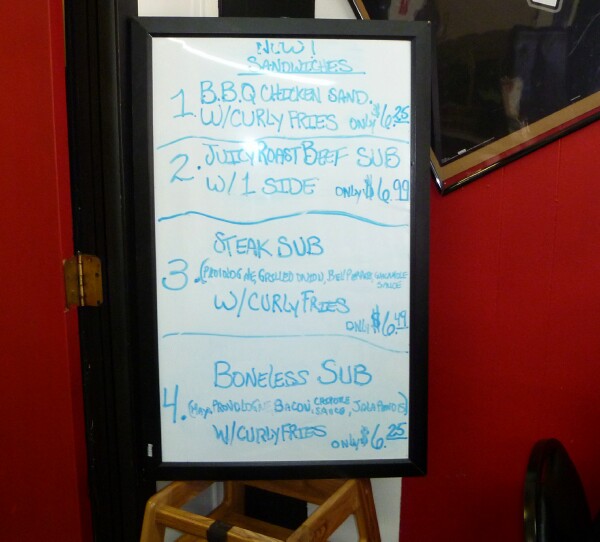 NEW!
SANDWICHES
1. B.B.Q CHICKEN SAND.
W/CURLY FRIES ONLY $6.25
2. JUICY ROAST BEEF SUB
W/1 SIDE ONLY $6.99
STEAK SUB
3. (PROVOLOGNE, GRILLED ONION, BELL PEPPER,
SAUCE
W/CURLY FRIES
ONLY $6.49
BONELESS SUB
4. (MAYO, PROVOLOGNE, BACON, SAUCE, JALAPANOS)
W/CURLY FRIES ONLY $6.25